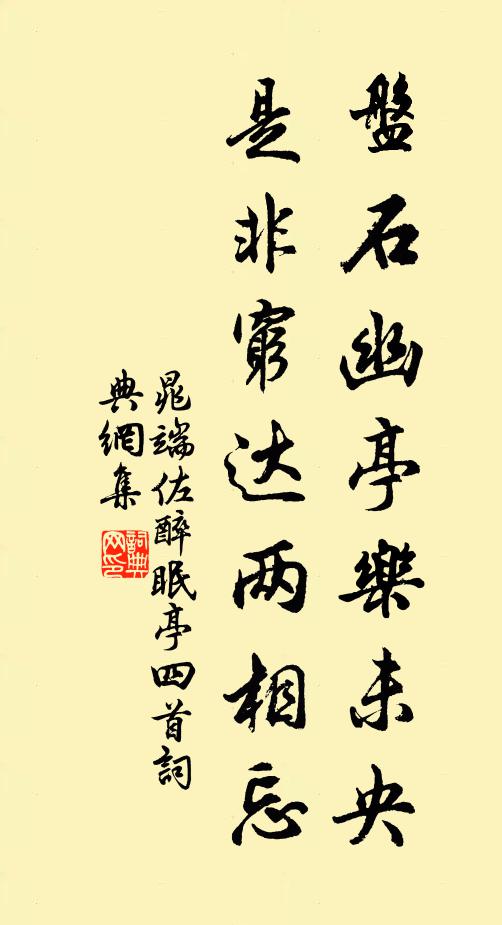 盤石幽亭樂未央
是非窮达两相忘
晁端佐醉眠亭四首詞
典網集
詞典网印